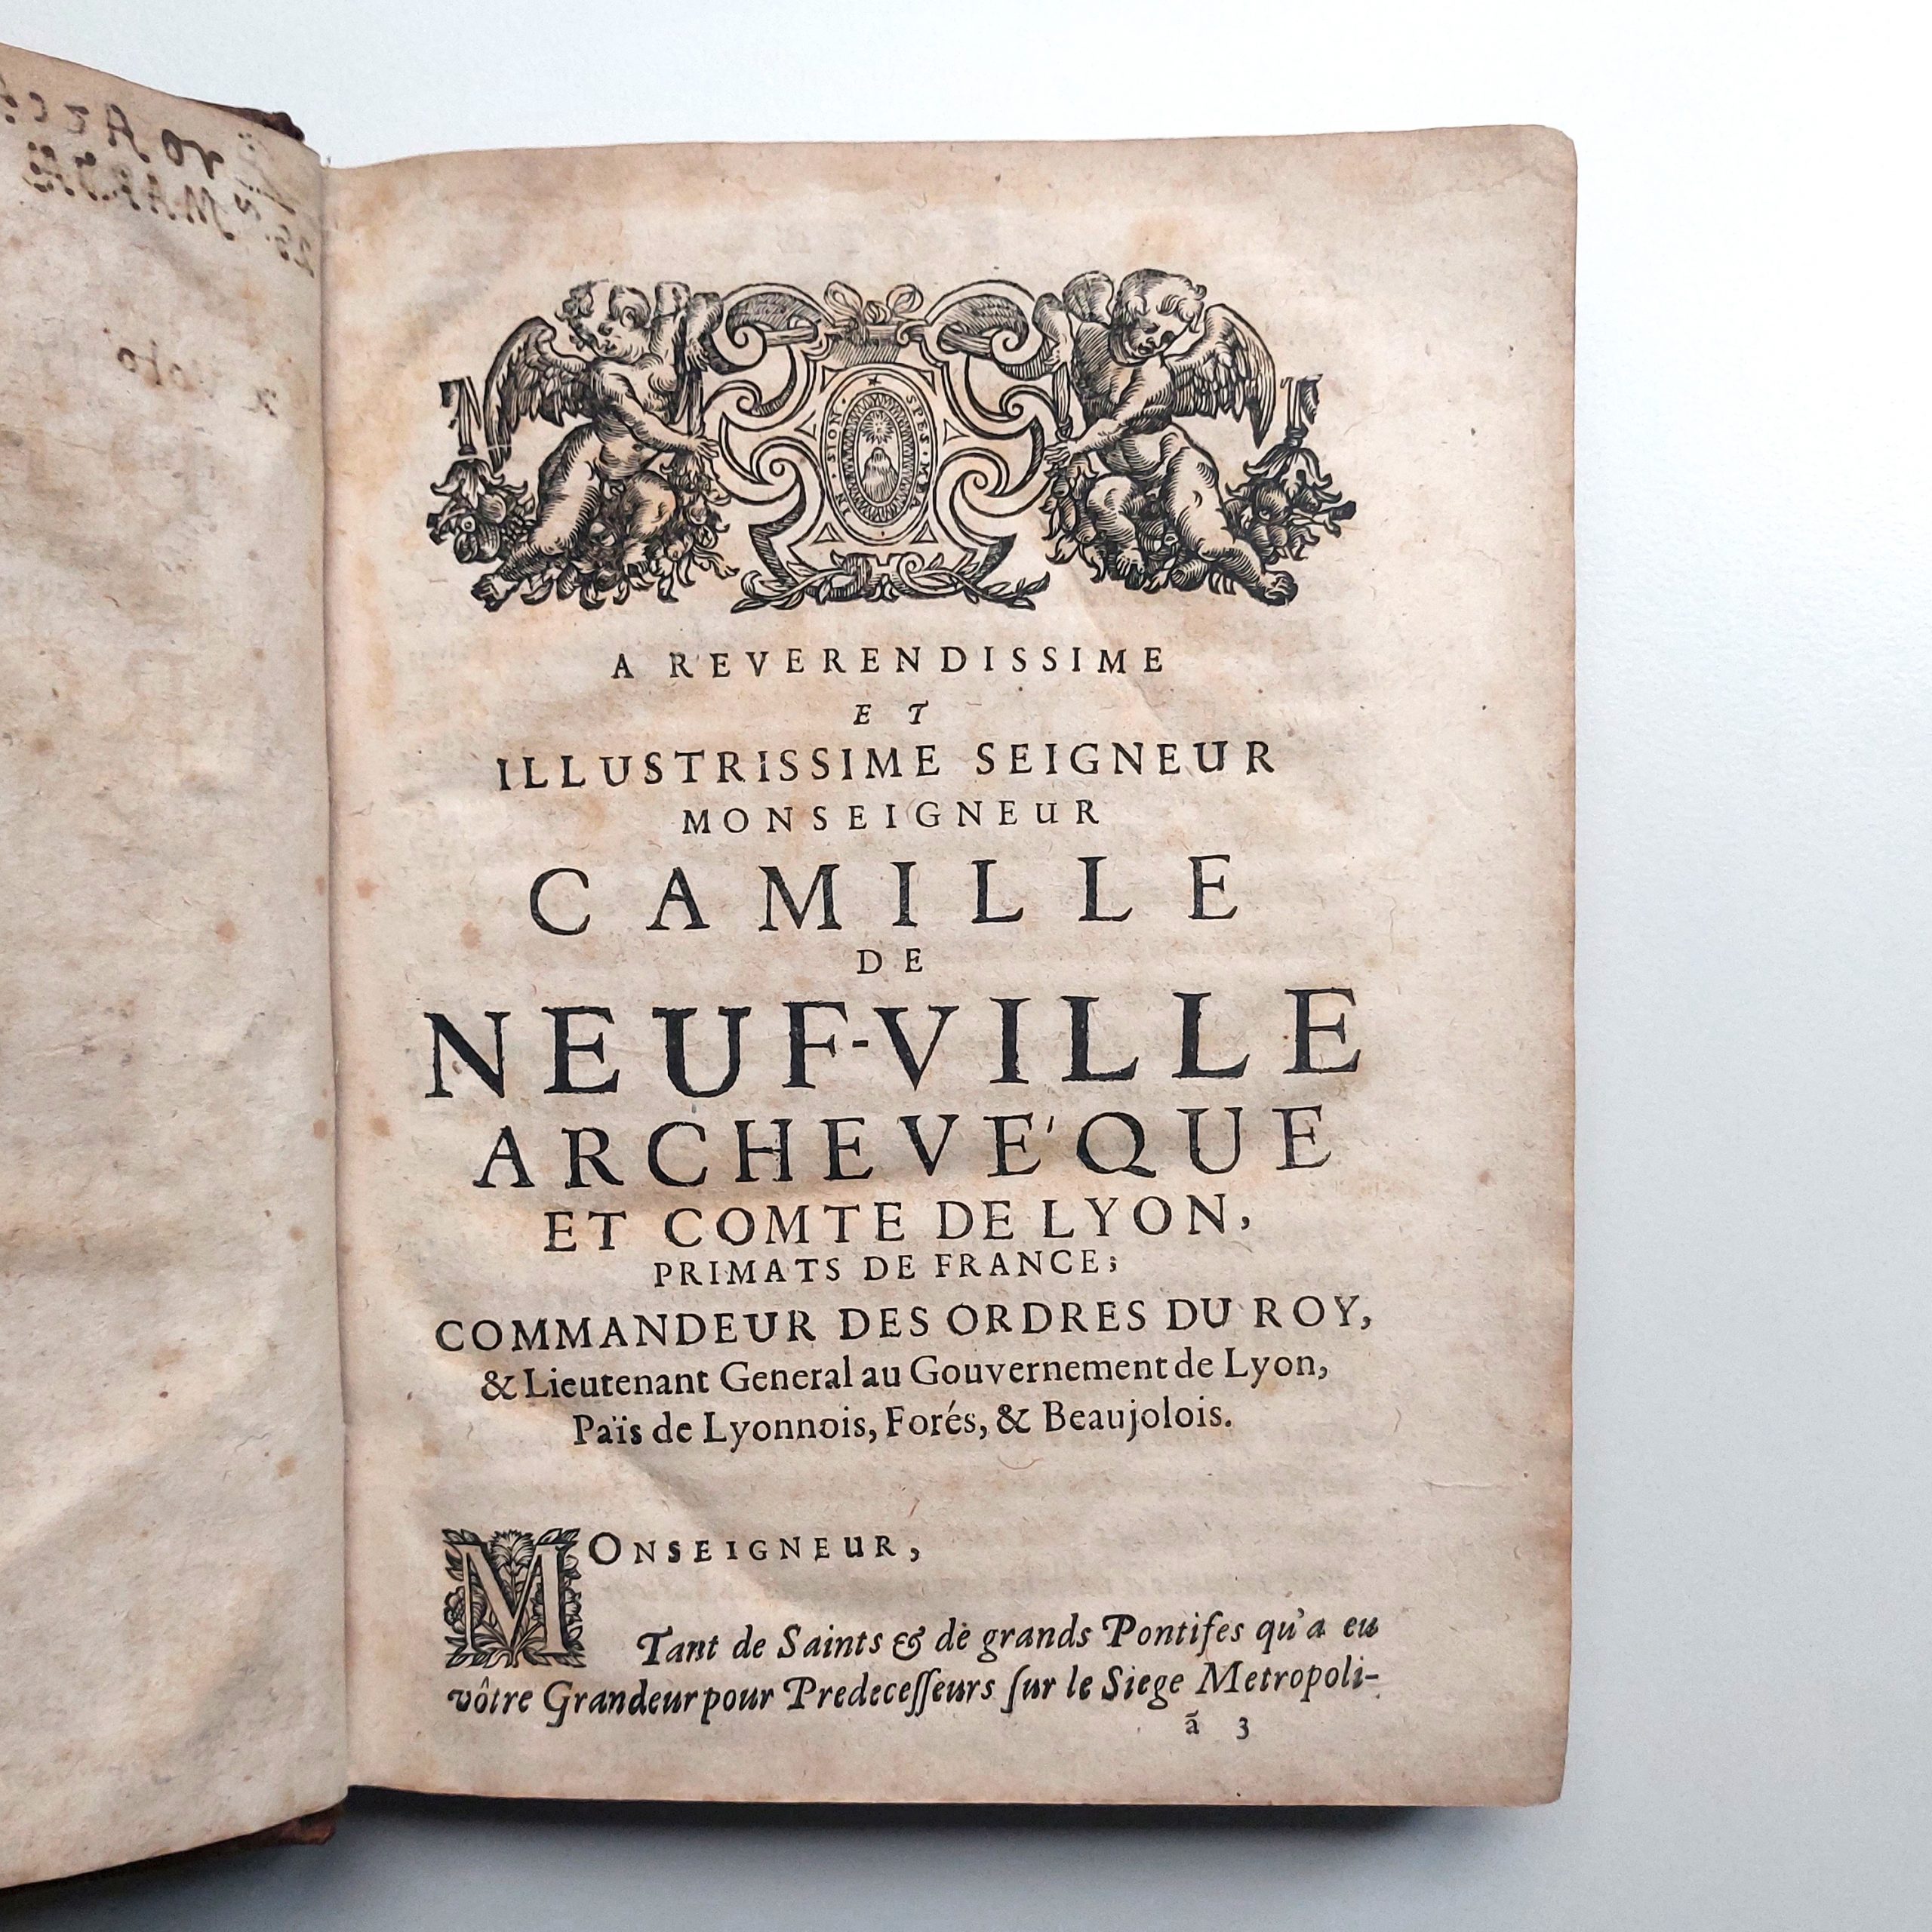 IN · SION · SPES · MEA
A REVERENDISSIME
ET
ILLUSTRISSIME SEIGNEUR
MONSEIGNEUR
CAMILLE
DE
NEUF-VILLE
ARCHEVE'QUE
ET COMTE DE LYON,
PRIMATS DE FRANCE;
COMMANDEUR DES ORDRES DU ROY,
& Lieutenant General au Gouvernement de Lyon,
Païs de Lyonnois, Forés, & Beaujolois.
MONSEIGNEUR,
Tant de Saints & de grands Pontifes qu'a eu
vôtre Grandeur pour Predeceſſeurs ſur le Siege Metropoli-
ã 3